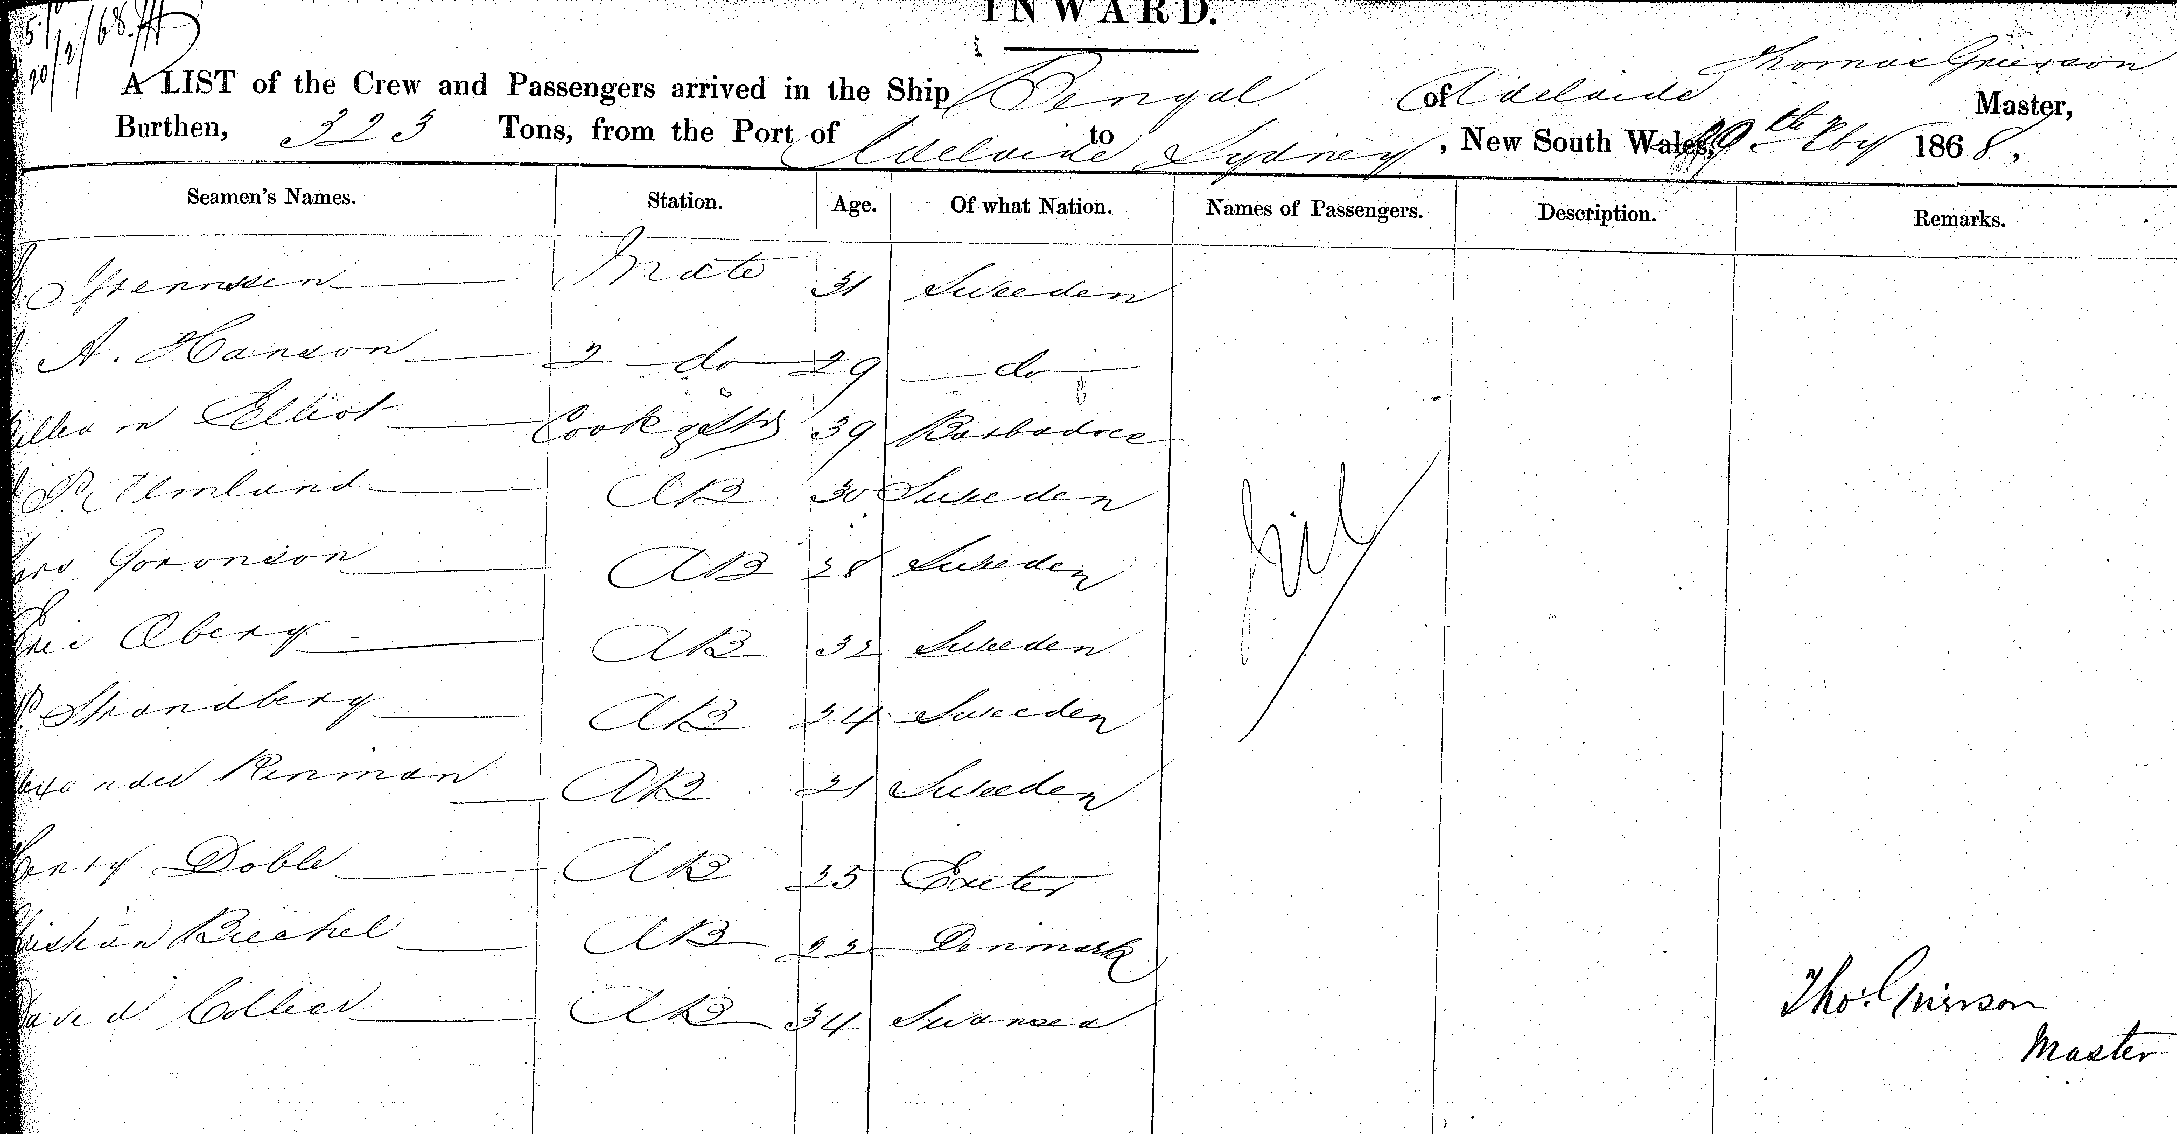 INWARD.
A LIST of the Crew and Passengers arrived in the Ship Bengal of Adelaide Thomas Grierson Master,
Burthen, 323 Tons, from the Port of Adelaide to Sydney, New South Wales, 19th Feby 1868.
Seamen's Names. Station. Age. Of what Nation. Names of Passengers. Description. Remarks.
Mate 31 Sweeden
A. Hanson 2 do 29 do
Elliot Cook & Std 39 Barbadoes
AB 30 Sweden
Goronson AB 28 Sweden
Eric Oberg AB 32 Sweeden
P. Strandberg AB 24 Sweeden
Renman AB 21 Sweeden
Henry Doble AB 25 Exeter
AB 22 Denmark
David Collier AB 34 Swansea
Nil
Thos. Grierson
Master